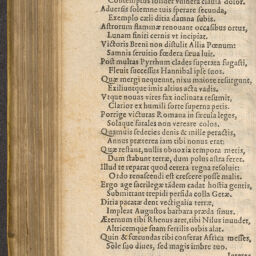 Contemptus tonder vulnera claudit dolor.
Aduersis solemne tuis sperare secunda,
Exemplo cæli ditia damna subis.
Astrorum flammæ renouant occasibus ortus,
Lunam finiri cernis vt incipiat.
Victoris Breni non distulit Allia Pœnam:
Samnis seruitio fœdera sæua luit.
Post multas Pyrrhum clades superata fugasti,
Fleuit successus Hannibal ipse suos.
Quæ mergi nequeunt, nixu maiore resurgunt,
Exiliuntque imis altius acta vadis.
Vtque nouas vires fax inclinata resumit,
Clarior ex humili sorte superna petis.
Porrige victuras Romana in sæcula leges,
Solaque fatales non vereare colos.
Quamuis sedecies denis & mille peractis,
Annus præterea iam tibi nonus erat:
Quæ restant, nullis obnoxia tempora metis,
Dum stabunt terræ, dum polus astra feret.
Illud te reparat quod cætera regna resoluit:
Ordo renascendi est crescere posse malis.
Ergo age sacrilegæ tãdem cadat hostia gentis,
Submittant trepidi perfida colla Getæ.
Ditia pacatæ dent vectigalia terræ,
Impleat Augustos barbara præda sinus.
Æternum tibi Rhenus aret, tibi Nilus inundet,
Altricemque suam fertilis orbis alat.
Quin & fœcundas tibi conferat Africa messes,
Sole suo diues, sed magis imbre tuo.